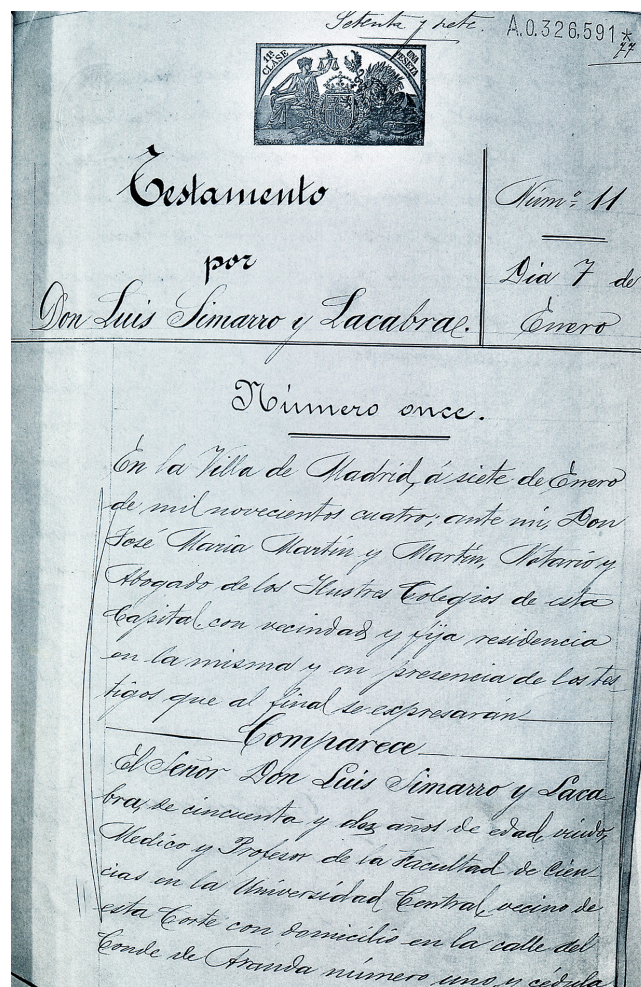 Setenta y siete. A.0.326,591*
77
11ª CLASE UNA PESETA
Testamento
por
Don Luis Simarro y Lacabra.
Númº 11
Dia 7 de
Enero
Número once.
En la Villa de Madrid, á siete de Enero
de mil novecientos cuatro; ante mi, Don
José Maria Martín y Martín, Notario y
Abogado de los Ilustres Colegios de esta
Capital, con vecindad y fija residencia
en la misma y en presencia de los tes-
tigos que al final se expresaran
Comparece
El Señor Don Luis Simarro y Laca-
bra, de cincuenta y dos años de edad, viudo,
Medico y Profesor de la Facultad de Cien-
cias en la Universidad Central, vecino de
esta Corte con domicilio en la calle del
Conde de Aranda número uno, y cédula